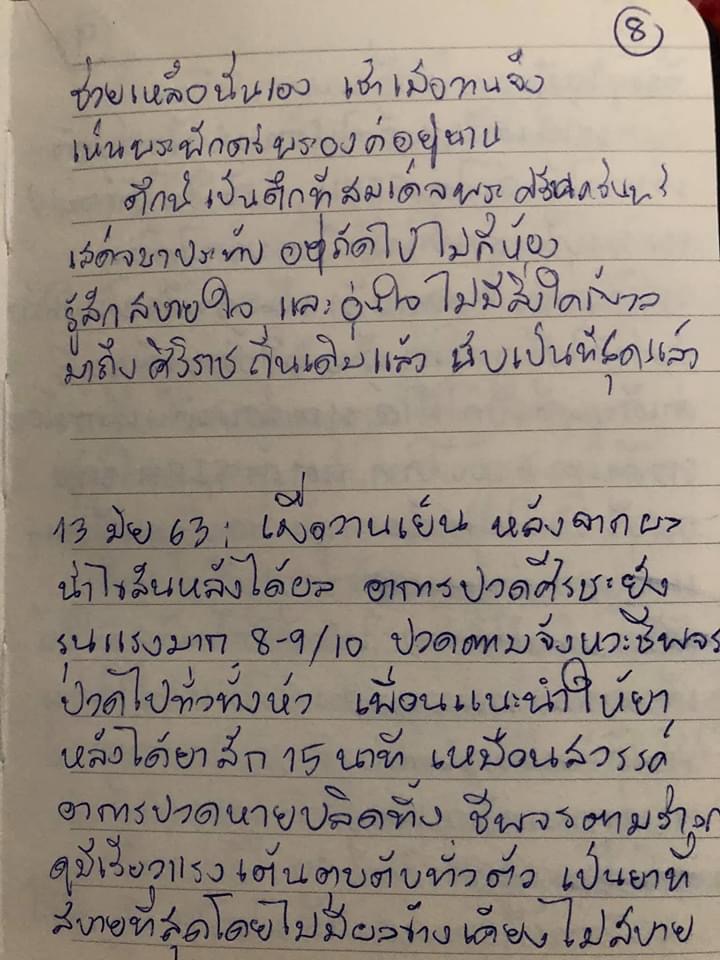 8
ช่วยเหลือนั่นเอง เช้าเมื่อวานจึง
เห็นพระพักตร์พระองค์อยู่นาน
ตึกนี้ เป็นตึกที่สมเด็จพระศรีนครินทร์
เสด็จมาประทับ อยู่ถัดไปไม่กี่ห้อง
รู้สึกสบายใจ และอุ่นใจ ไม่มีสิ่งใดกังวล
มาถึง ศิริราช ถิ่นเดิมแล้ว นับเป็นที่สุดแล้ว
13 มิย 63 : เมื่อวานเย็น หลังจากผล
น้ำไขสันหลังได้ผล อาการปวดศีรษะยัง
รุนแรงมาก 8-9/10 ปวดตามจังหวะชีพจร
ปวดไปทั่วทั้งหัว เพื่อนแนะนำให้ยา
หลังได้ยาสัก 15 นาที เหมือนสวรรค์
อาการปวดหายปลิดทิ้ง ชีพจรตามร่าง
ดูมีเรี่ยวแรง เต้นตุบตับทั่วตัว เป็นยาที่
สบายที่สุดโดยไม่มีผลข้างเคียงไม่สบาย